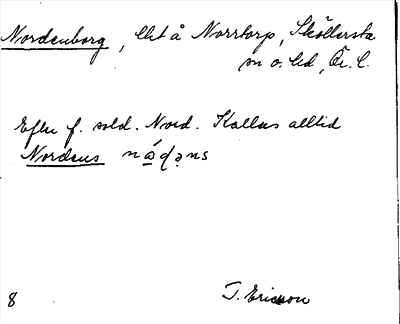 Nordenborg, lht å Norrtorp, Sköllersta
sn o. hd, Ör. l.
Efter f. sold. Nord. Kallas alltid
Nordens
8
T. Ericsson